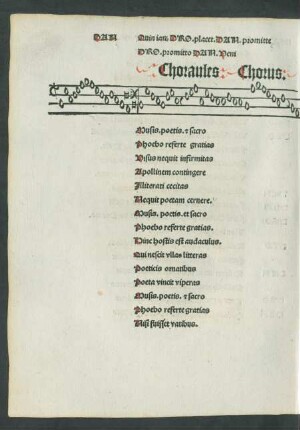 DAN Quin iam DRO. placet. DAN. promitte
DRO. promitto DAN. Veni
Choraules Chorus.
Musis. poetis. ⁊ sacro
Phoebo referte gratias
Visus nequit infirmitas
Apollinem contingere
Illiterati cecitas
Nequit poetam cernere.
Musis. poetis. et sacro
Phoebo referte gratias.
Hinc hostis est audaculus.
Qui nescit vllas litteras
Poeticis ornatibus
Poeta vincit viperas
Musis. poetis. ⁊ sacro
Phoebo referte gratias
Nisi fuisset vatibus.